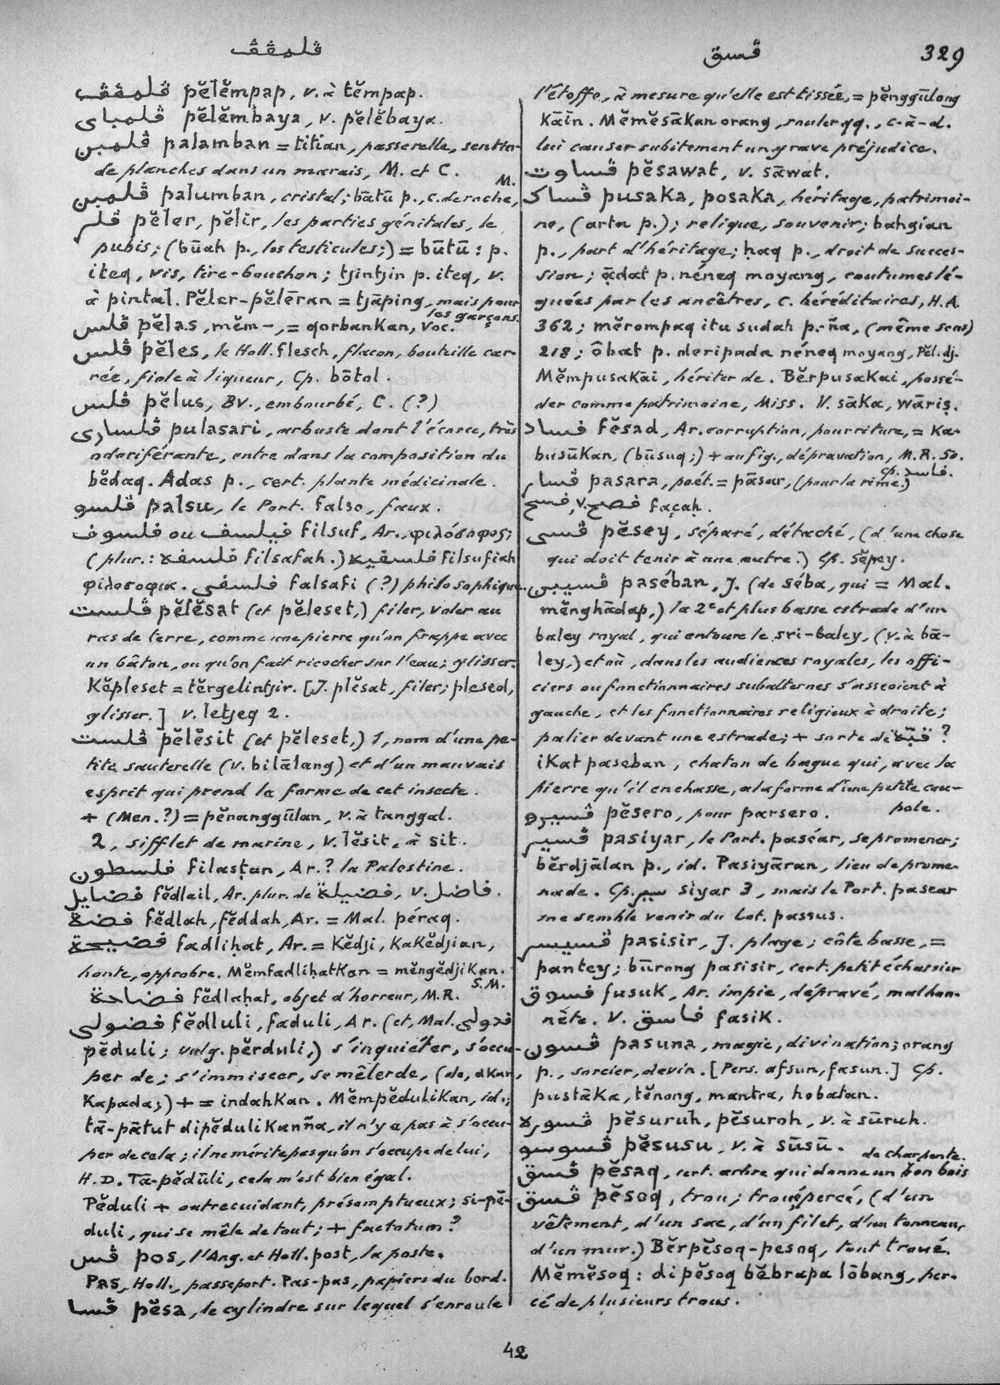 ڤلمڤڤ
ڤسق
329
ڤلمڤڤ pĕlĕmpap, v. à tĕmpap.
ڤلمباى pĕlĕmbaya, v. pĕlĕbaya.
ڤلمبن palamban = titian, passerelle, sentier
de planches dans un marais, M. et C.
ڤلمبن palumban, cristal; bātū p., c. de roche, M.
ڤلر pĕler, pĕlir, les parties génitales, le
pubis; (būah p., les testicules;) = būtū: p.
iteq, vis, tire-bouchon; tjintjin p. iteq, v.
à pintal. Pĕler-pĕlēran = tjāping, mais pour
les garçons.
ڤلس pĕlas, mĕm-, = qorbankan, voc.
ڤلس pĕles, le Holl. flesch, flacon, bouteille car-
rée, fiole à liqueur, Cp. bōtol.
ڤلس pĕlus, BV., embourbé, C. (?)
ڤلسارى pulasari, arbuste dont l'écorce, très
odoriférante, entre dans la composition du
bĕdaq. Adas p., cert. plante médicinale.
ڤلسو palsu, le Port. falso, faux.
فيلسف ou فلسوف filsuf, Ar., φιλόσοφος;
(plur.: فلسفه filsafah.) فلسفيه filsufiah
φιλοσοφια. فلسفي falsafi (?) philosophique.
ڤلست pĕlĕsat (et pĕleset,) filer, voler au
ras de terre, comme une pierre qu'on frappe avec
un bâton, ou qu'on fait ricocher sur l'eau; glisser.
Kĕpleset = tĕrgelintjir. [J. plĕsat, filer; plesed,
glisser.] v. letjeq 2.
ڤلست pĕlĕsit (et pĕleset,) 1, nom d'une pe-
tite sauterelle (v. bilālang) et d'un mauvais
esprit qui prend la forme de cet insecte.
+ (Men.?) = pĕnanggūlan, v. à tanggal.
2, sifflet de marine, v. lĕsit, à sit.
فلسطون filasṭun, Ar.? la Palestine.
فضايل fĕdlail, Ar. plur. de فضيلة, v. فاضل.
فضة fĕdlah, fĕddah, Ar. = Mal. péraq.
فضيحة fadliḥat, Ar. = Kĕdji, Kakĕdjian,
honte, opprobre. Mĕmfadliḥatkan = mĕngĕdjikan.
S.M.
فضاحة fĕdlaḥat, objet d'horreur, M.R.
فضولى fĕdluli, faduli, Ar. (et, Mal. ڤدولى
pĕduli; vulg. pĕrduli,) s'inquiéter, s'occu-
per de; s'immiscer, se mêler de, (de, akan,
Kapada;) + = indahkan. Mĕmpĕdulikan, id.;
tā-pātut dipĕdulikanña, il n'y a pas à s'occu-
per de cela; il ne mérite pas qu'on s'occupe de lui,
H.D. Tā-pĕdūli, cela m'est bien égal.
Pĕduli + outrecuidant, présomptueux; si-pĕ-
duli, qui se mêle de tout; + factotum?
ڤس pos, l'Ang. et Holl. post, la poste.
PAS, Holl., passeport. Pas-pas, papiers du bord.
ڤسا pĕsa, le cylindre sur lequel s'enroule
l'étoffe, à mesure qu'elle est tissée, = pĕnggūlong
Kāin. Mĕmĕsākan orang, rouler qq., c-à-d.
lui causer subitement un grave préjudice.
ڤساوت pĕsawat, v. sāwat.
ڤساک pusaka, posaka, héritage, patrimoi-
ne, (arta p.); relique, souvenir; bahgian
p., part d'héritage; ḥaq p., droit de succes-
sion; ạ̄dat p. néneq moyang, coutumes lé-
guées par les ancêtres, c. héréditaires, H.A.
362; mĕrompaq itu sudah p.-ña, (même sens)
218; ôbat p. deripada néneq moyang, Pĕl. dj.
Mĕmpusakāi, hériter de. Bĕrpusakai, possé-
der comme patrimoine, Miss. V. sāka, wāriṣ.
فساد fĕsad, Ar. corruption, pourriture, = Ka-
busūkan, (būsuq;) + au fig., dépravation, M.R. 50.
Cp. فاسد.
ڤسار pasara, poét. = pāsar, (pour la rime.)
فسح, v. فصح façaḥ.
ڤسى pĕsey, séparé, détaché, (d'une chose
qui doit tenir à une autre.) Cp. sĕpey.
ڤسيبن paséban, J. (de séba, qui = Mal.
mĕnghādap,) la 2e et plus basse estrade d'un
baley royal, qui entoure le sri-baley, (v. à bā-
ley,) et où, dans les audiences royales, les offi-
ciers ou fonctionnaires subalternes s'asseoient à
gauche, et les fonctionnaires religieux à droite;
palier devant une estrade; + sorte de قبّة?
ikat paseban, chaton de bague qui, avec la
pierre qu'il enchasse, a la forme d'une petite cou-
pole.
ڤسيرو pĕsero, pour parsero.
ڤسير pasiyar, le Port. paséar, se promener;
bĕrdjālan p., id. Pasiyāran, lieu de prome-
nade. Cp. سير siyar 3, mais le Port. pasear
me semble venir du Lat. passus.
ڤسيسر pasisir, J. plage; côte basse, =
pantey; būrong pasisir, cert. petit échassier
فسوق fusuk, Ar. impie, dépravé, malhon-
nête. V. فاسق fasik.
ڤسون pasuna, magie, divination; orang
p., sorcier, devin. [Pers. afsun, fasun.] Cp.
pustāka, tĕnong, mantra, hobatan.
ڤسوره pĕsuruh, pĕsuroh, v. à sūruh.
ڤسوسو pĕsusu, v. à sūsū.
de charpente.
ڤسق pĕsaq, cert. arbre qui donne un bon bois
ڤسق pĕsoq, trou; troué, percé, (d'un
vêtement, d'un sac, d'un filet, d'un tonneau,
d'un mur.) Bĕrpĕsoq-pesoq, tout troué.
Mĕmĕsoq: dipĕsoq bĕbrapa lōbang, per-
cé de plusieurs trous.
42